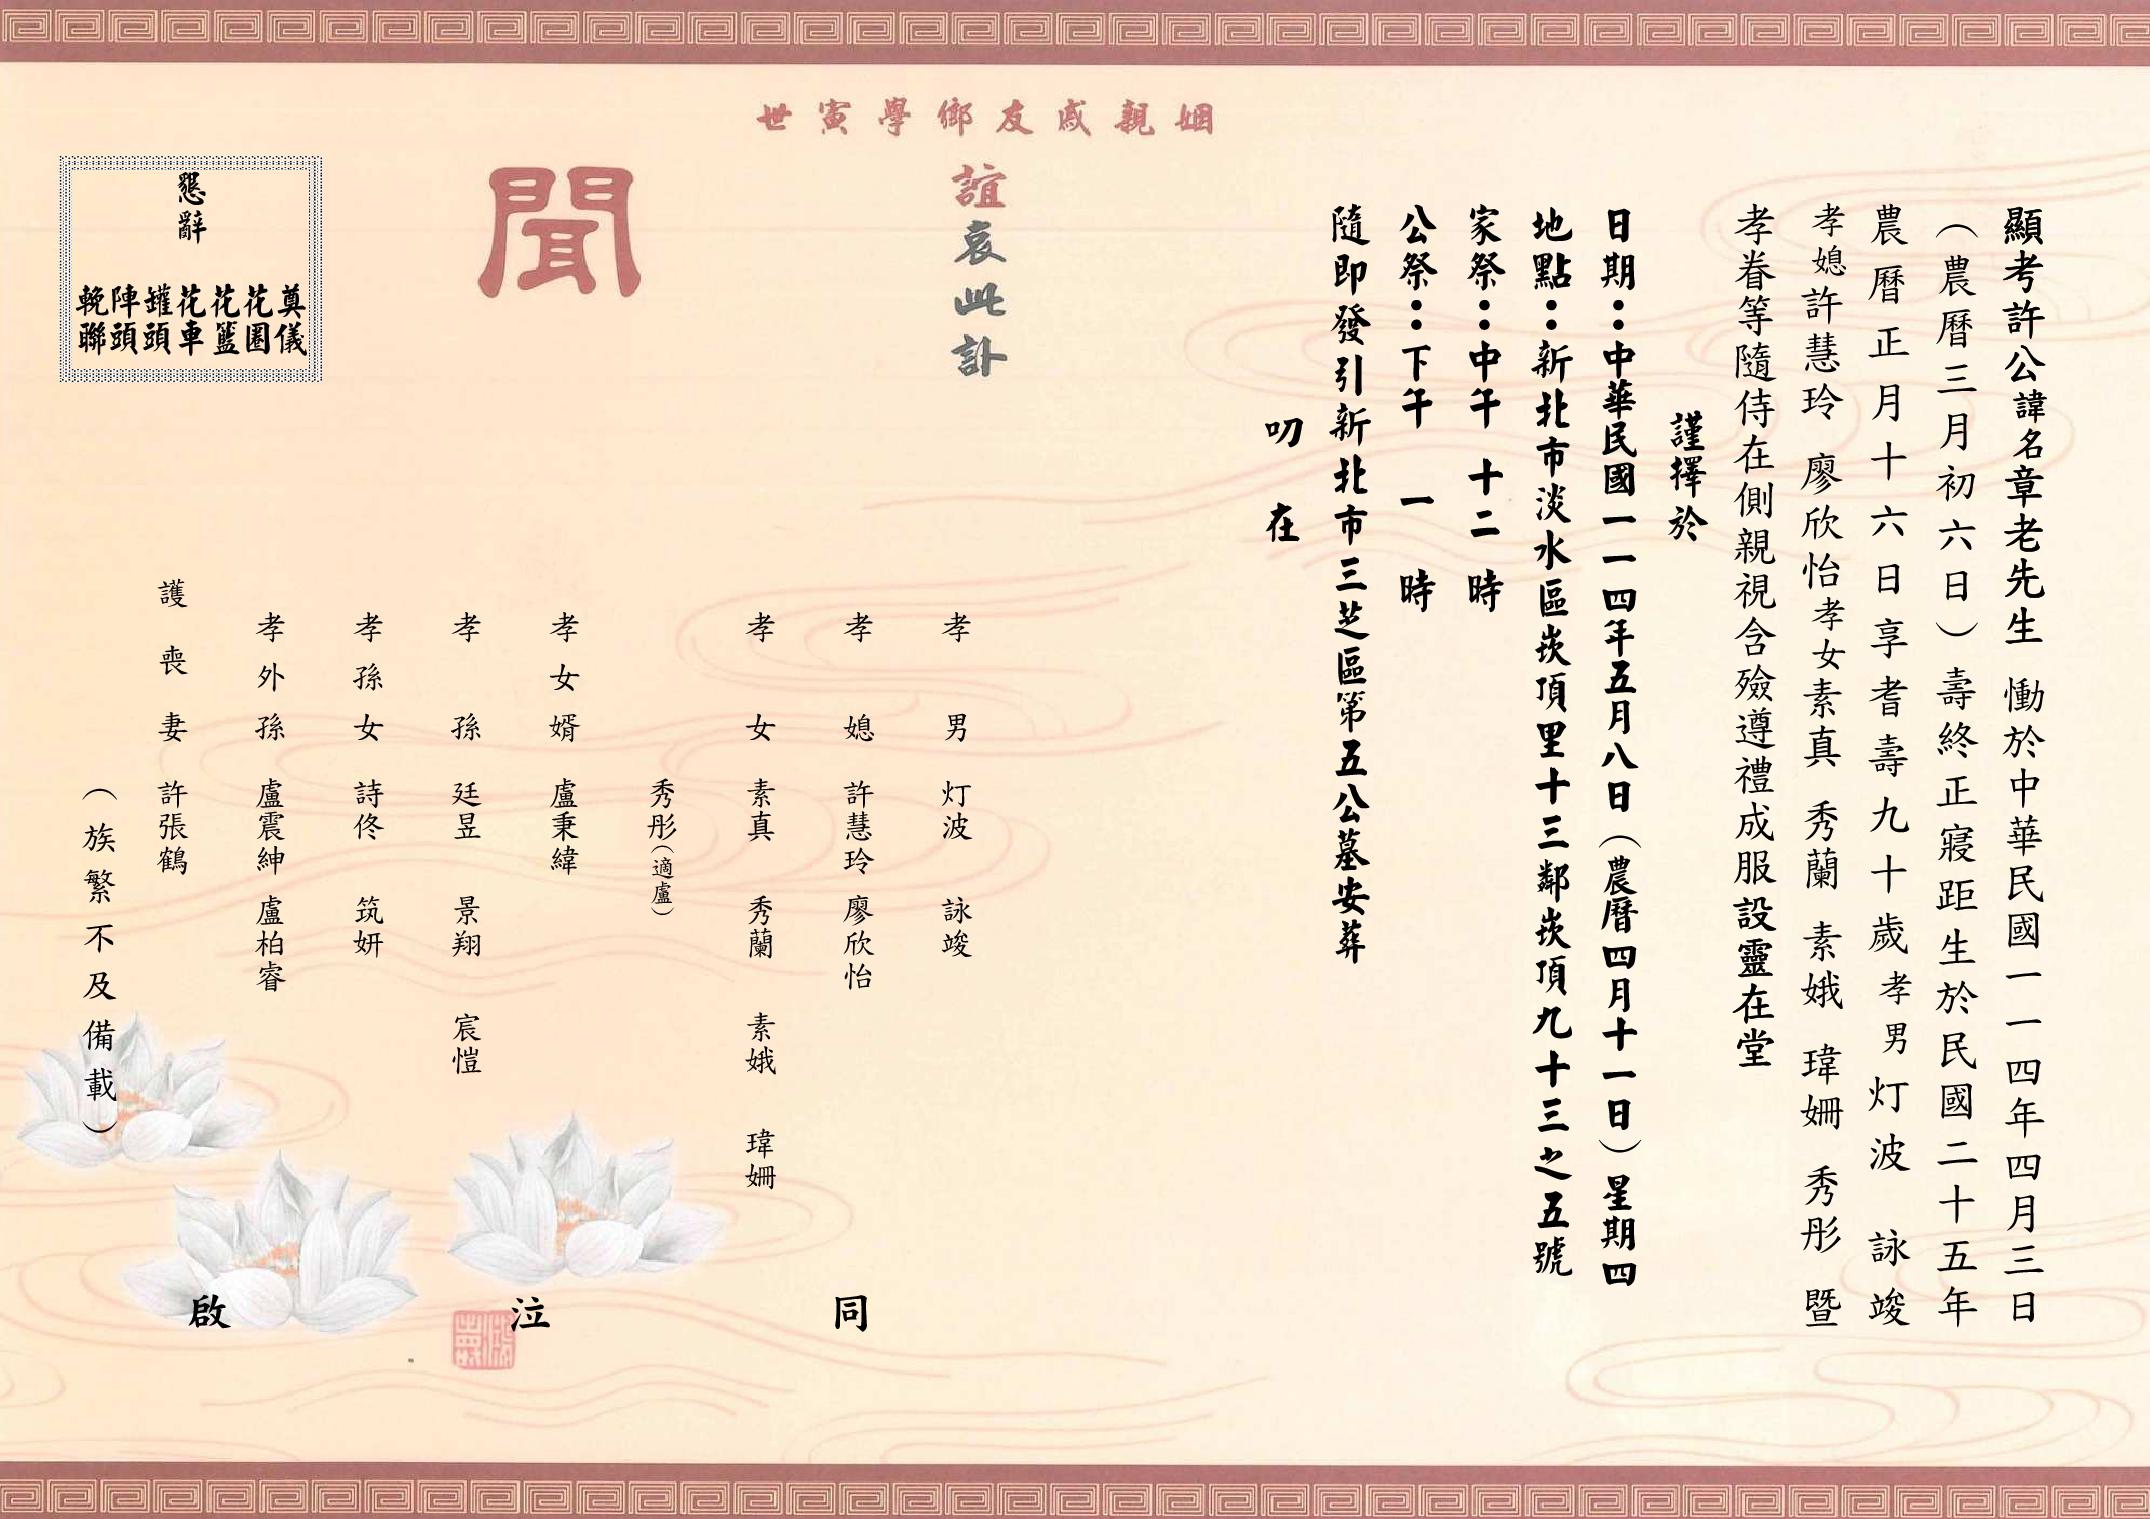 顯考許公諱名章老先生 慟於中華民國一一四年四月三日
（農曆三月初六日）壽終正寢距生於民國二十五年
農曆正月十六日享耆壽九十歲孝男灯波 詠竣
孝媳許慧玲 廖欣怡孝女素真 秀蘭 素娥 瑋姍 秀彤 暨
孝眷等隨侍在側親視含殮遵禮成服設靈在堂
謹擇於
日期：中華民國一一四年五月八日（農曆四月十一日）星期四
地點：新北市淡水區崁頂里十三鄰崁頂九十三之五號
家祭：中午 十二 時
公祭：下午 一 時
隨即發引新北市三芝區第五公墓安葬
叨 在
姻親戚友鄉學寅世
誼哀此訃
聞
孝男 灯波 詠竣
孝媳 許慧玲 廖欣怡
孝女 素真 秀蘭 素娥 瑋姍
秀彤（適盧）
孝女婿 盧秉緯
孝孫 廷昱 景翔 宸愷
孝孫女 詩佟 筑妍
孝外孫 盧震紳 盧柏睿
護喪妻 許張鶴
（族繁不及備載）
同 泣 啟
懇辭
奠儀
花圈
花籃
花車
罐頭
陣頭
輓聯